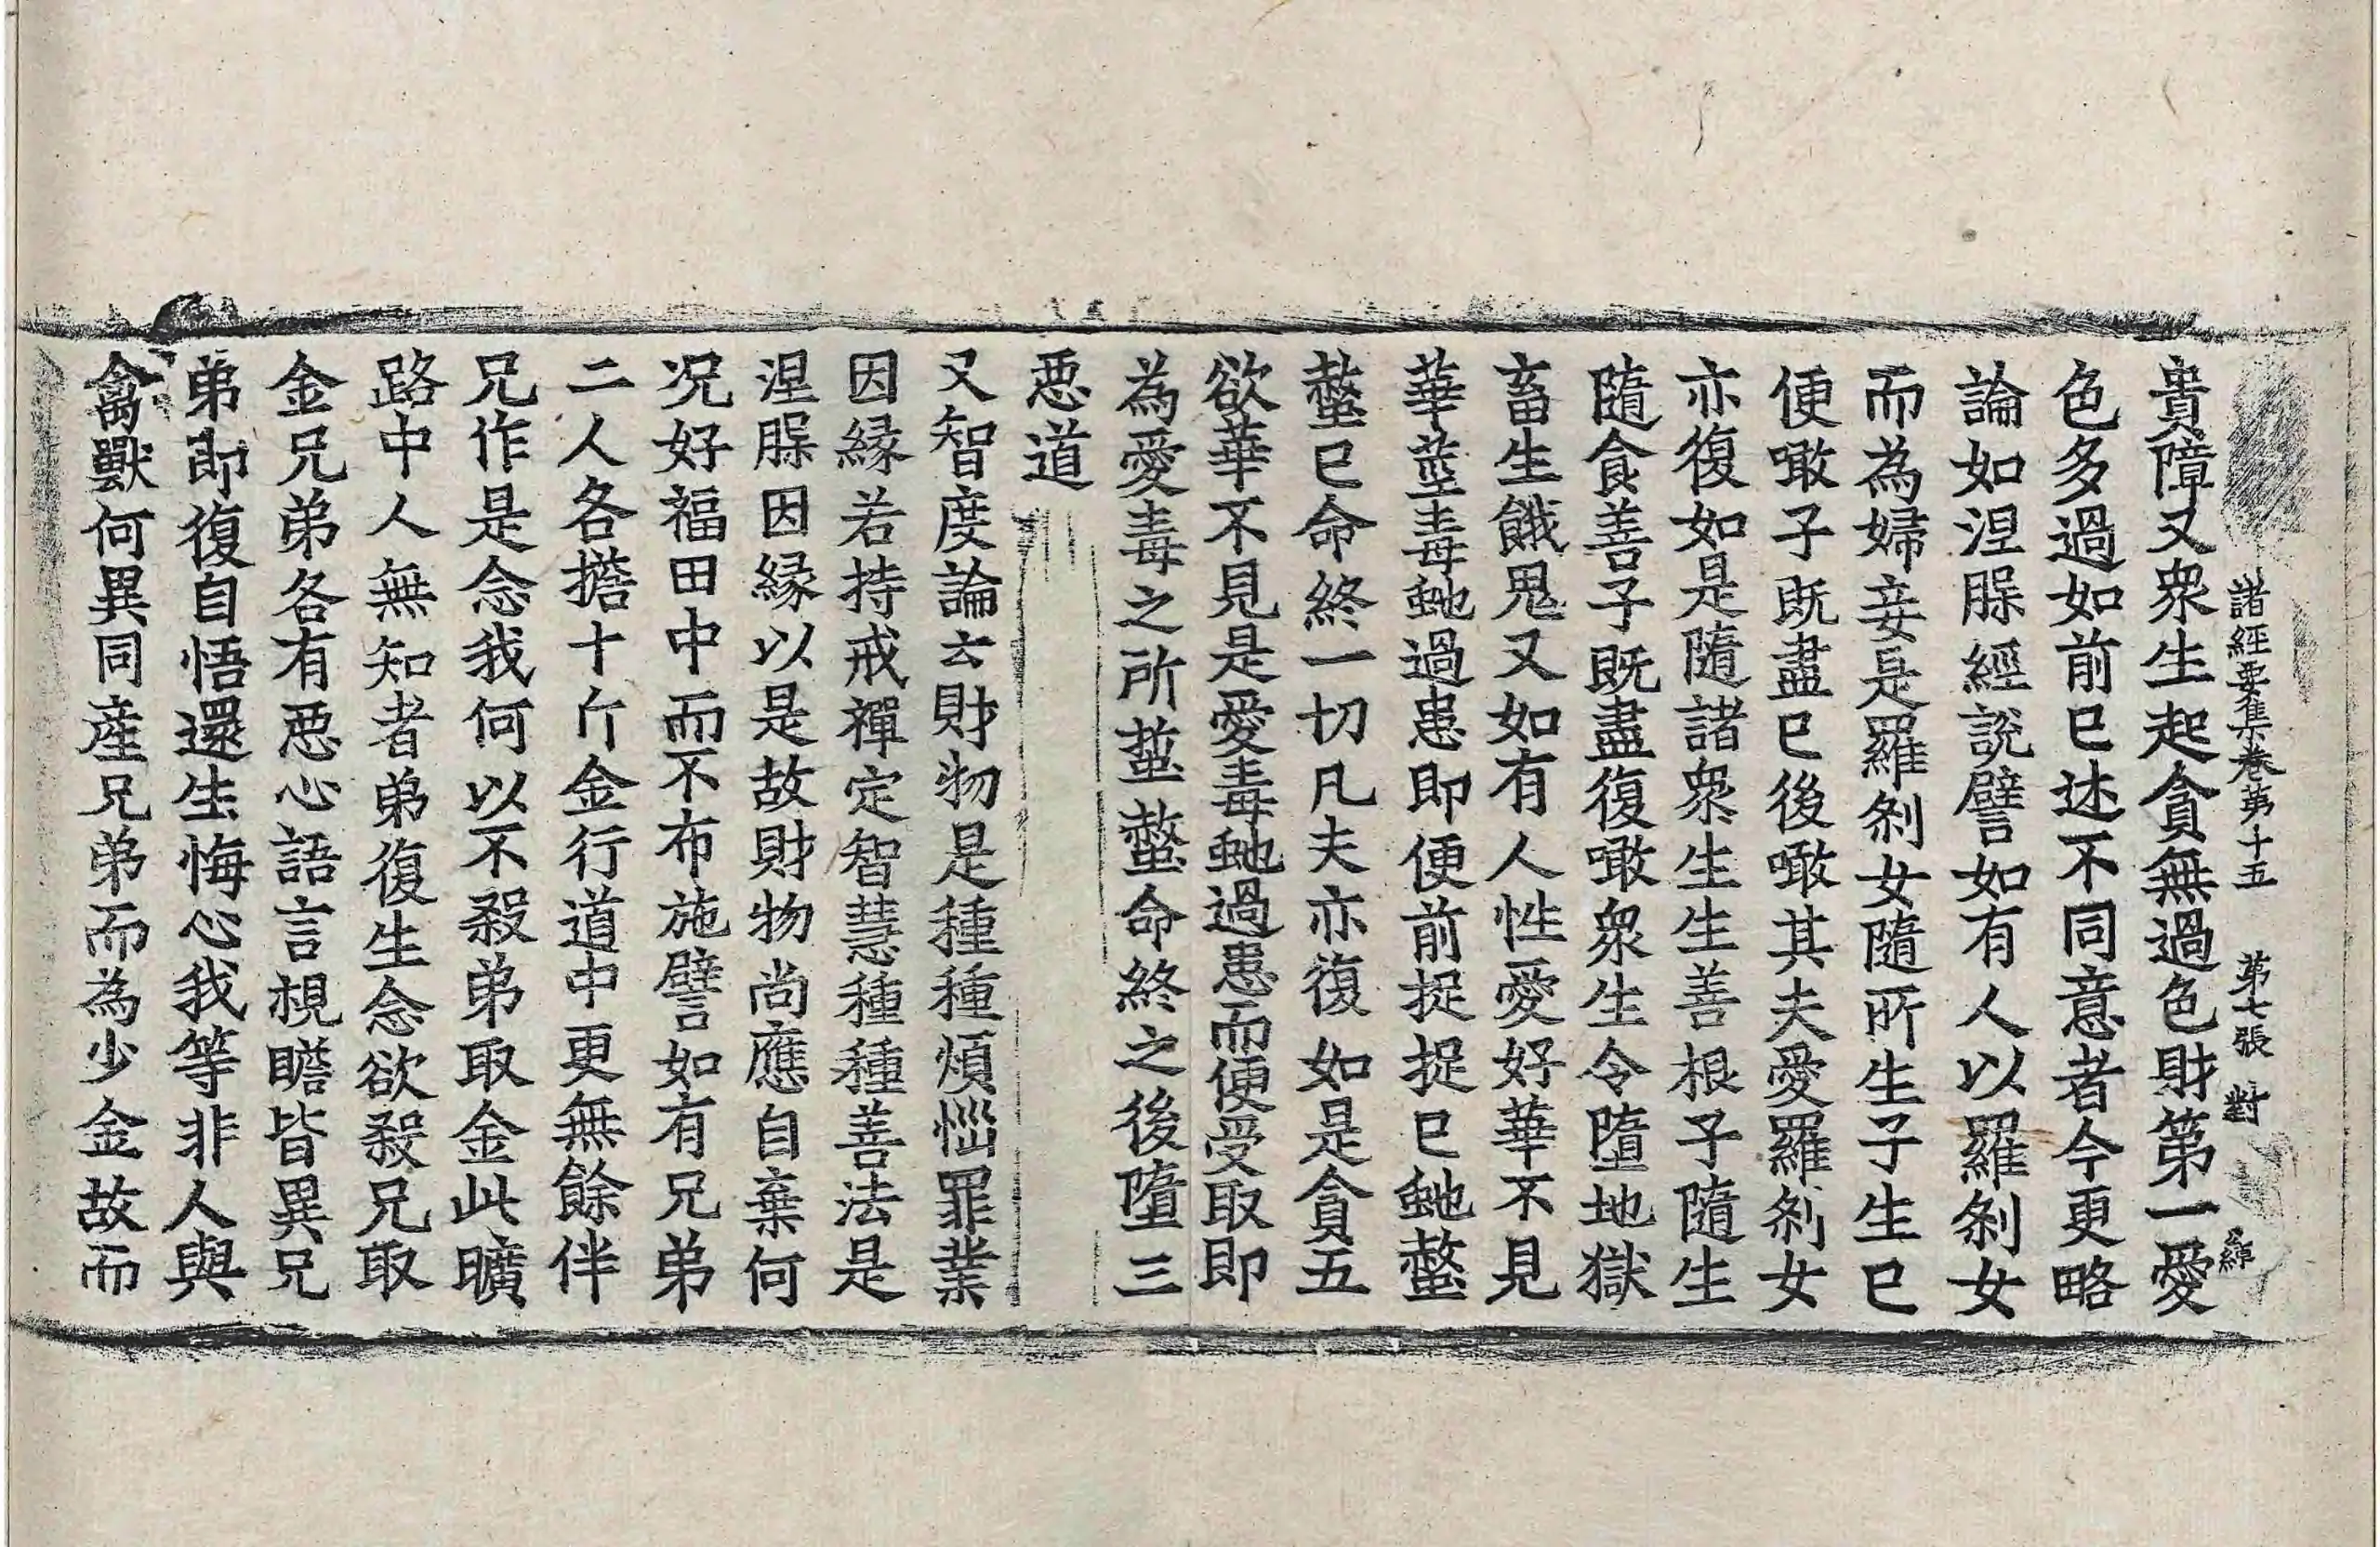 諸經要集卷第十五 第七張 對
貴障又衆生起貪無過色財第一愛
色多過如前已述不同意者今更略
論如涅槃經說譬如有人以羅剎女
而為婦妾是羅剎女隨所生子生已
便噉子既盡已後噉其夫愛羅剎女
亦復如是隨諸衆生生善根子隨生
隨食善子既盡復噉衆生令墮地獄
畜生餓鬼又如有人性愛好華不見
華莖毒虵過患即便前捉捉已虵螫
螫已命終一切凡夫亦復如是貪五
欲華不見是愛毒虵過患而便受取即
為愛毒之所蜇螫命終之後墮三
惡道
又智度論云財物是種種煩惱罪業
因縁若持戒禪定智慧種種善法是
涅槃因縁以是故財物尚應自棄何
况好福田中而不布施譬如有兄弟
二人各擔十斤金行道中更無餘伴
兄作是念我何以不殺弟取金此曠
路中人無知者弟復生念欲殺兄取
金兄弟各有惡心語言視瞻皆異兄
弟即復自悟還生悔心我等非人與
禽獸何異同産兄弟而為少金故而